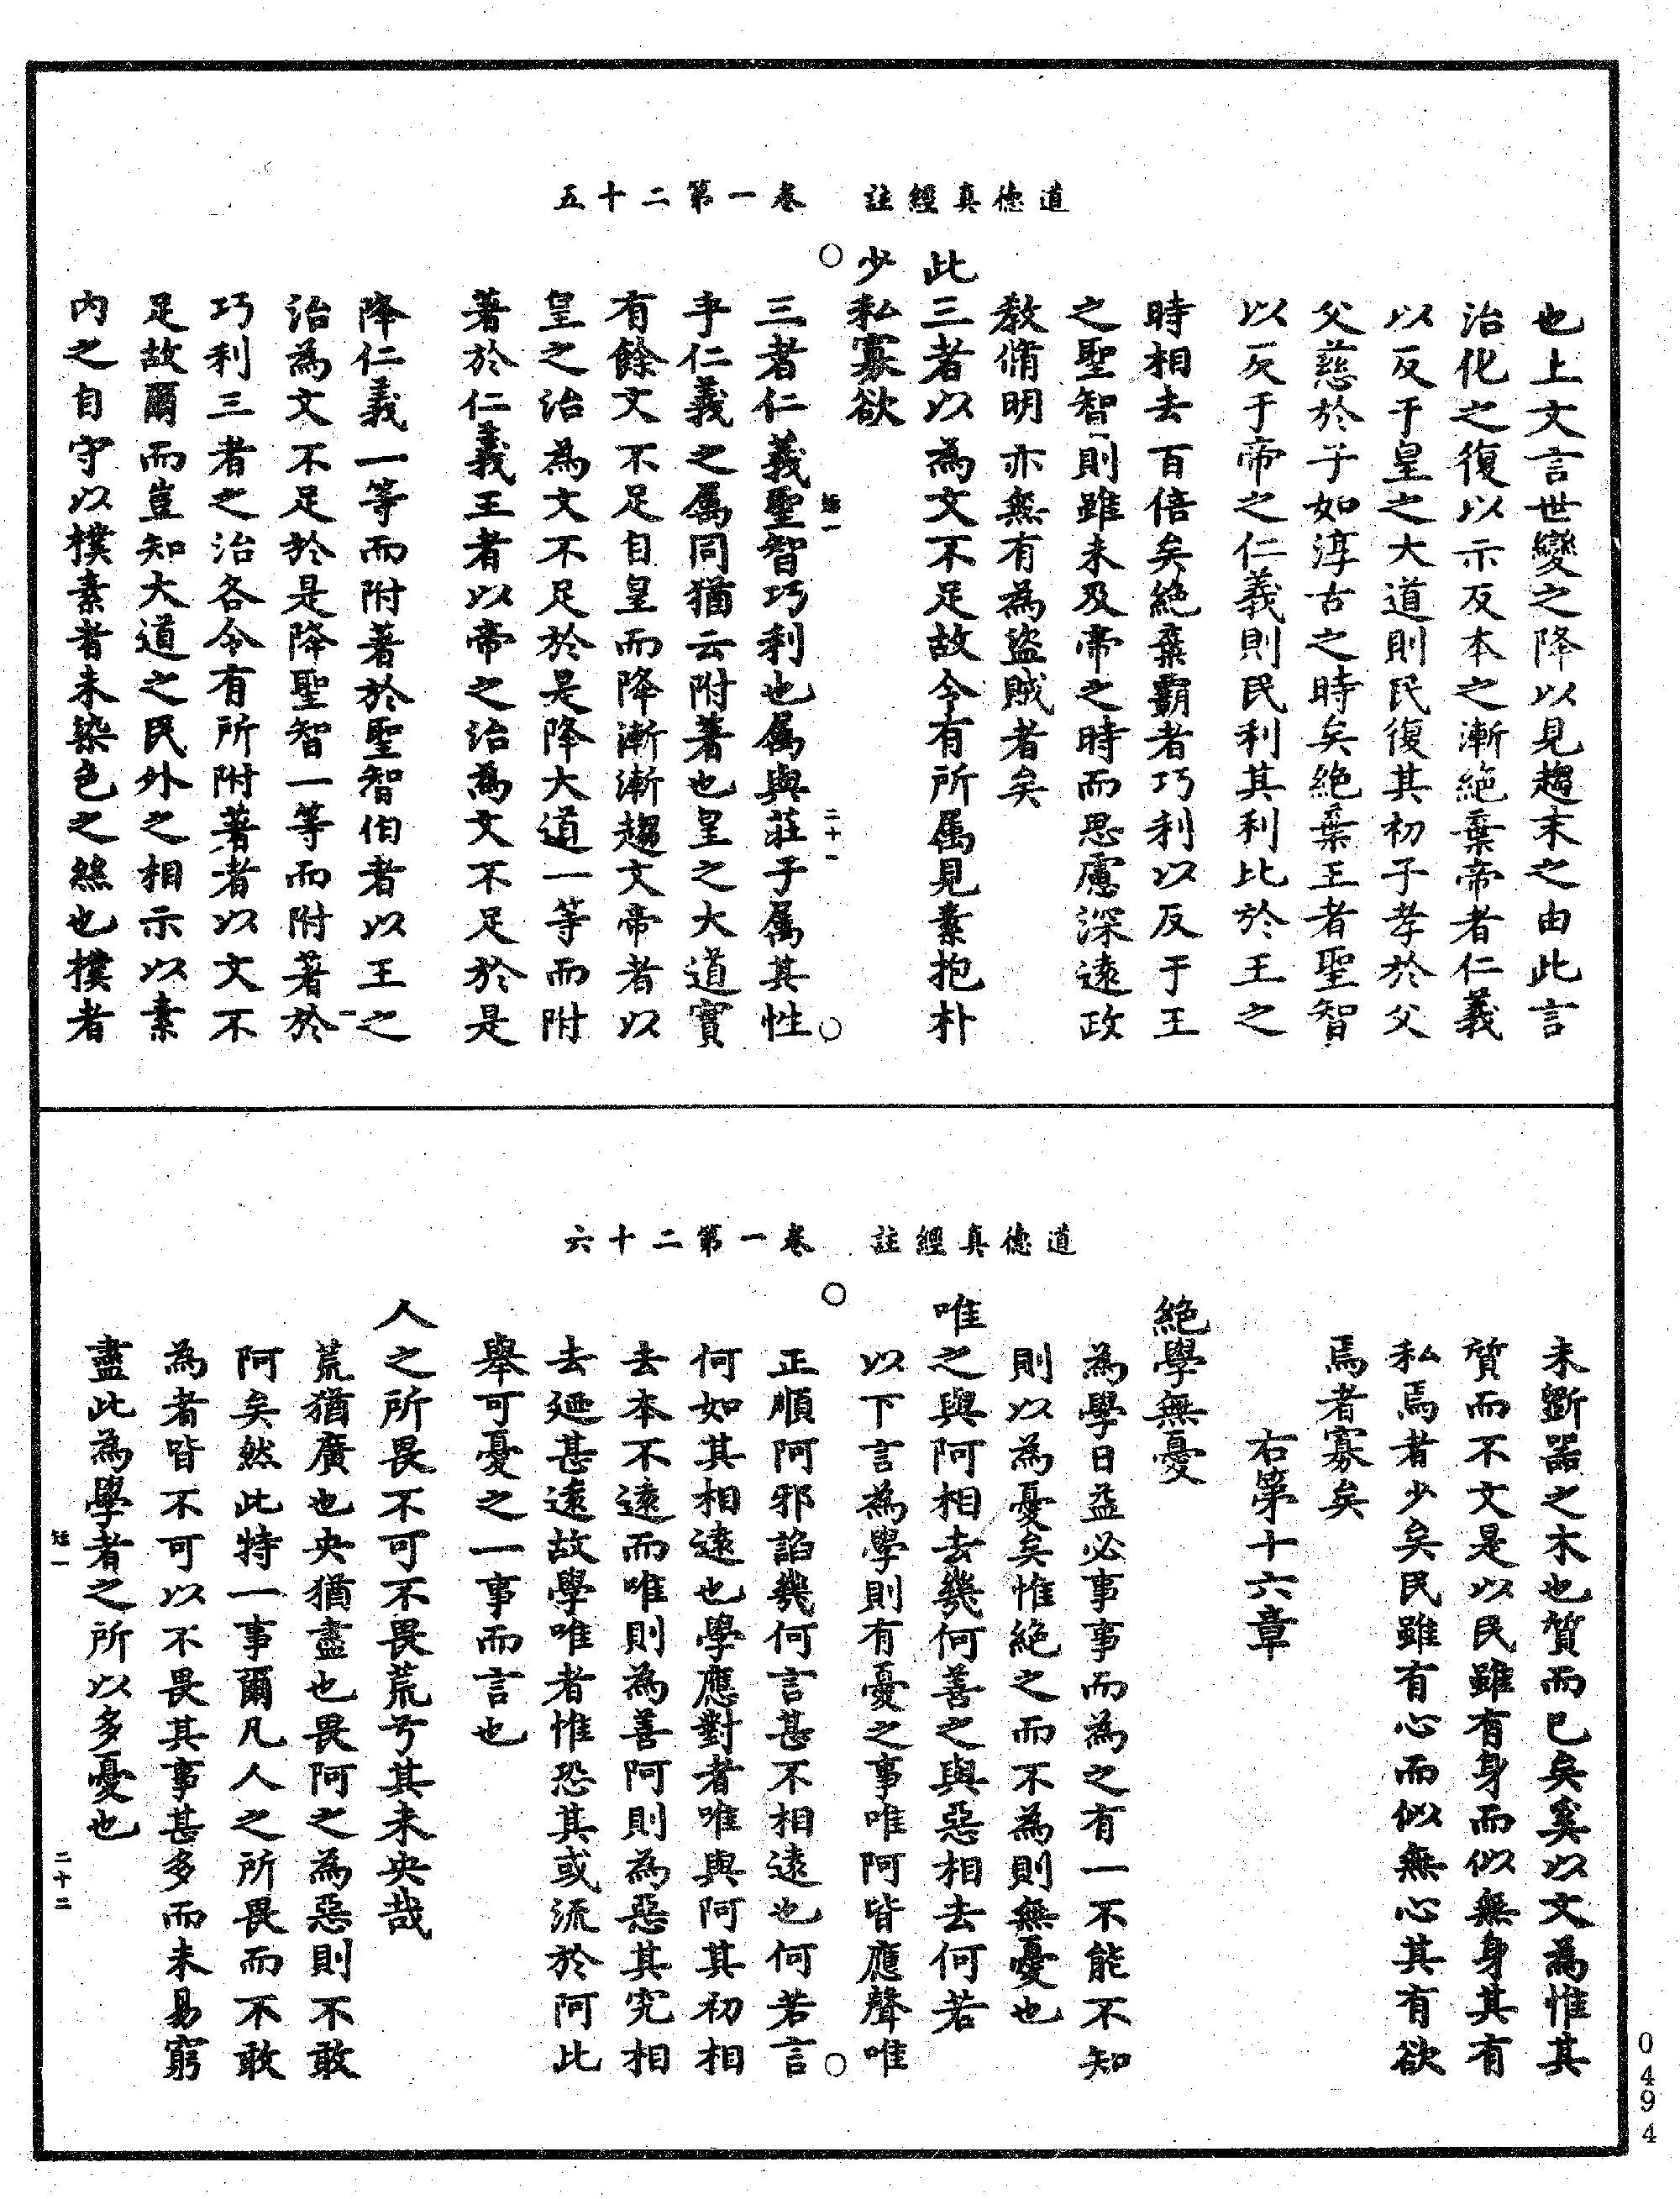 道德真經註　卷一第二十五
也上文言世變之降以見趨末之由此言
治化之復以示反本之漸絕棄帝者仁義
以反于皇之大道則民復其初子孝於父
父慈於子如淳古之時矣絕棄王者聖智
以反于帝之仁義則民利其利比於王之
時相去百倍矣絕棄霸者巧利以反于王
之聖智則雖未及帝之時而思慮深遠政
教脩明亦無有為盜賊者矣
此三者以為文不足故令有所属見素抱朴
少私寡欲
三者仁義聖智巧利也属與莊子属其性
乎仁義之属同猶云附著也皇之大道實
有餘文不足自皇而降漸漸趨文帝者以
皇之治為文不足於是降大道一等而附
著於仁義王者以帝之治為文不足於是
降仁義一等而附著於聖智伯者以王之
治為文不足於是降聖智一等而附著於
巧利三者之治各令有所附著者以文不
足故爾而豈知大道之民外之相示以素
內之自守以樸素者未染色之絲也樸者
二十一
道德真經註　卷一第二十六
未斲器之木也質而已矣奚以文為惟其
質而不文是以民雖有身而似無身其有
私焉者少矣民雖有心而似無心其有欲
焉者寡矣
右第十六章
絕學無憂
為學日益必事事而為之有一不能不知
則以為憂矣惟絕之而不為則無憂也
唯之與阿相去幾何善之與惡相去何若
以下言為學則有憂之事唯阿皆應聲唯
正順阿邪諂幾何言甚不相遠也何若言
何如其相遠也學應對者唯與阿其初相
去本不遠而唯則為善阿則為惡其究相
去迺甚遠故學唯者惟恐其或流於阿此
舉可憂之一事而言也
人之所畏不可不畏荒兮其未央哉
荒猶廣也央猶盡也畏阿之為惡則不敢
阿矣然此特一事爾凡人之所畏而不敢
為者皆不可以不畏其事甚多而未易窮
盡此為學者之所以多憂也
二十二
0494